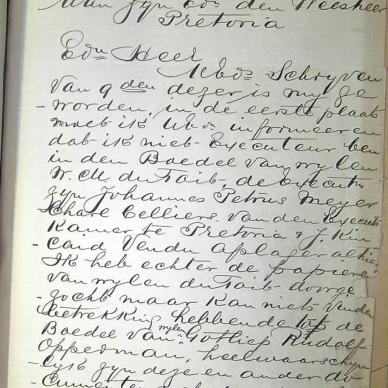 Aan Zyn Ed: den Weesheer
Pretoria
Edn Heer
UEds Schryven
van 9 den dezer is my ge
- worden, in de eerste plaats
moet ik UEds informeeren
dat ik niet Executeur ben
in den Boedel van wylen
W. M. du Toit, de Execut:
zyn Johannes Petrus Meyer
Charl Celliers. van den Execut
Kamer te Pretoria & J. Kin
- caid Vendu Afslager alhier
Ik heb echter de papiere
van wylen du Toit doorge
- zocht maar kan niets vinden
betrekking hebbende tot de
Boedel van wylen Gotliep Rudolf
Opperman, heelwaarschyn
- lyk zyn deze en ander do
- cumenten